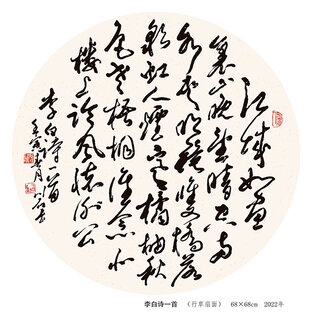 江城如画
裏山晚望晴空两
水夹明镜雙橋落
彩虹人煙寒橘柚秋
色老梧桐谁念北
楼上临风怀谢公
李白诗一首
壬寅月
李白诗一首 （行草扇面） 68×68cm 2022年